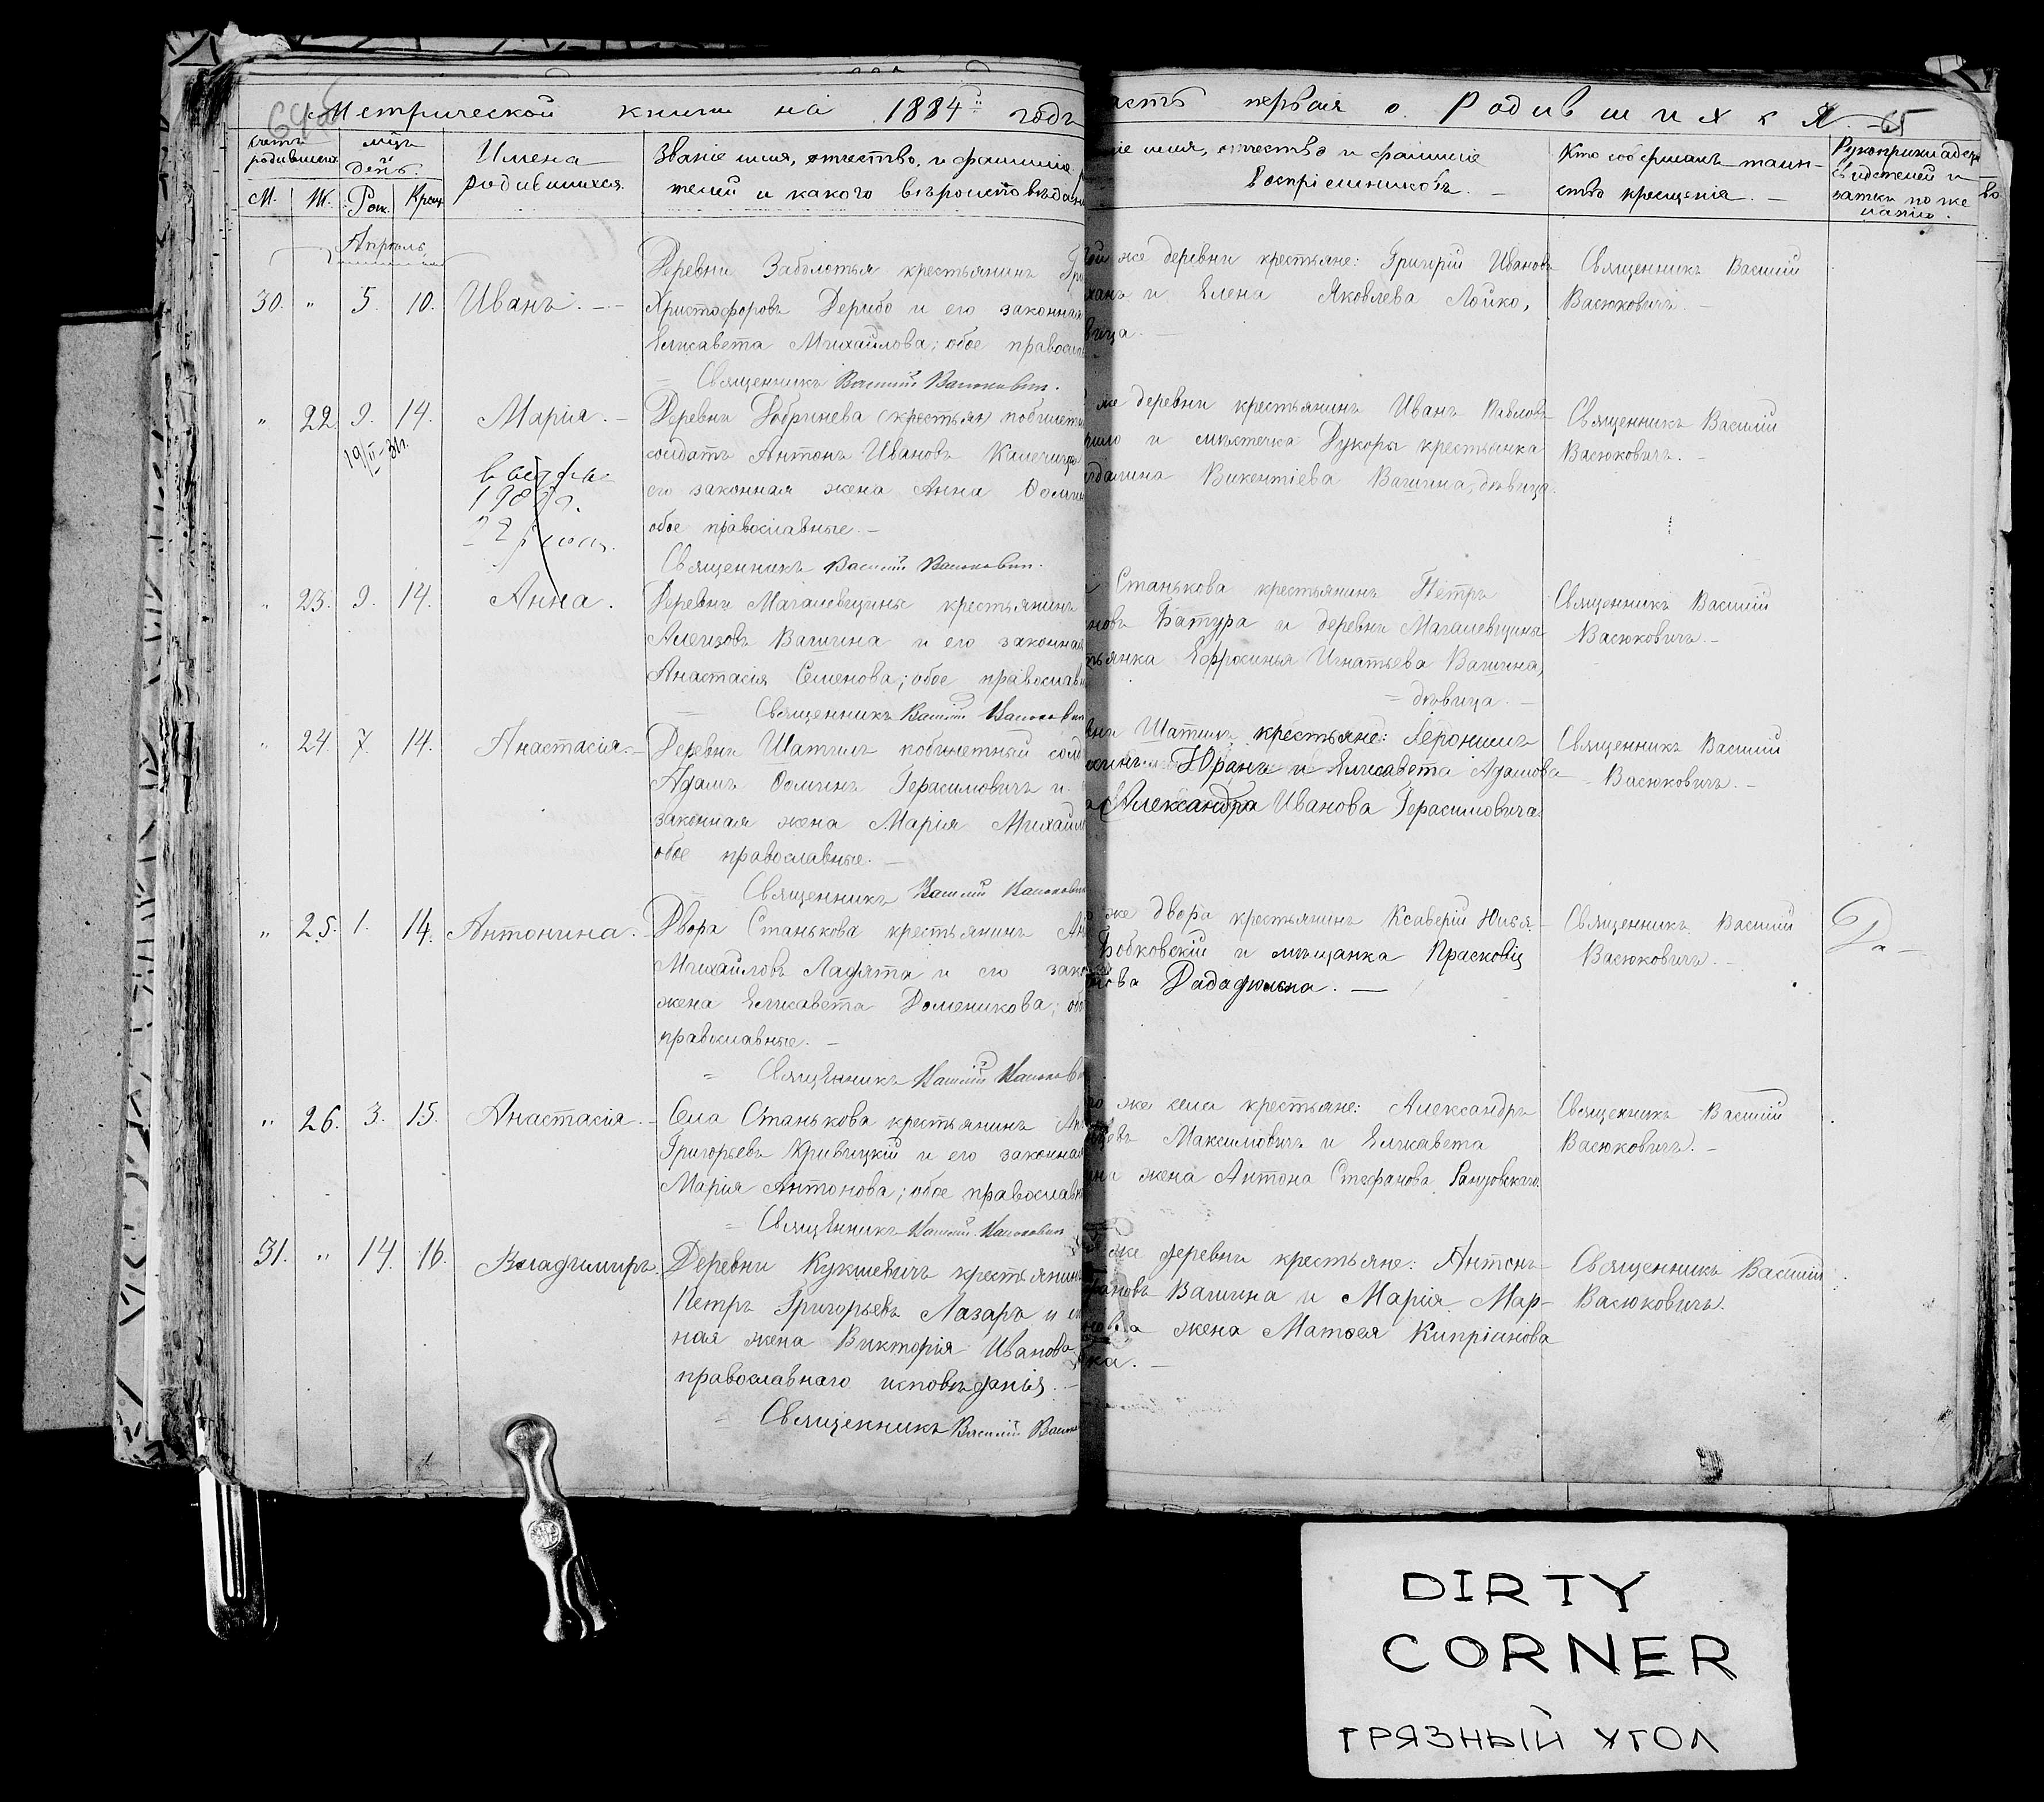 Метрической книги на 1884й годъ
асть первая о Родившихся. 65
счетъ родившихся
мцъ и день.
Имена
родившихся
Званіе имя, отчество, и фамиліе
телей и какого вѣроисповѣдан
іе имя, отчество и фамиліе
воспріемниковъ. —
Кто совершалъ таин-
ство крещенія. —
Рукоприкладство
свидетелей и
записки по же
ланію.
М. Ж. Рож. Крещ.
Апрѣль
30. " 5. 10. Иванъ. —
Деревни Заболотья крестьянинъ Гри
Христофоровъ Дерибо и его законная
Елисавета Михайлова; обое правосла
Священникъ Василій Васюковичъ.
ой же деревни крестьяне: Григрій Ивановъ
ханъ и Елена Яковлева Лойко,
вица. —
Священникъ Василій
Васюковичъ. —
" 22. 9. 14. Марія. —
19/II-31г.
22
Деревни Добринева (крестьян) побилетн
солдатъ Антонъ Ивановъ
его законная жена Анна Ѳомин
обое православные. —
Священникъ Василій Васюковичъ.
же деревни крестьянинъ Иванъ Павловъ
и мѣстечка Дукоры крестьянка
гдалина Викентіева Вашина, дѣвица.
Священникъ Василій
Васюковичъ. —
" 23. 9. 14. Анна.
Деревни Магалевщины крестьянинъ
Алеизовъ Вашина и его законная
Анастасія Семенова; обое православн
Священникъ Василій Васюкович
Станькова крестьянинъ Петръ
новъ Батура и деревни Магалевщины
тьянка Ефросинья Игнатьева Вашина,
= дѣвица. —
Священникъ Василій
Васюковичъ. —
" 24. 7. 14. Анастасія. —
Деревни Шатилъ побилетный солд
Адамъ Ѳоминъ Герасимовичъ и
законная жена Марія Михайл
обое православные. —
Священникъ Василій Васюкович
вни Шатилъ крестьяне: Героnимъ
Юранъ и Елисавета Адамова
Александра Иванова Герасимовича.
Священникъ Василій
Васюковичъ. —
" 25. 1. 14. Антонина. —
Двора Станькова крестьянинъ Ан
Михайловъ Ладята и его зако
жена Елисавета Доменикова; об
православные. —
= Священникъ Василій Васюков
о же двора крестьянинъ Ксаверій Юлья-
Бобковскій и мѣщанка Прасковія
нова Дадафюльна. —
Священникъ Василій
Васюковичъ. —
" 26. 3. 15. Анастасія. —
Села Станькова крестьянинъ Ан
Григорьевъ Кривицкій и его законная
Марія Антонова; обое православн
= Священникъ Василій Васюкович
го же села крестьяне: Александръ
Максимовичъ и Елисавета
жена Антона Стефанова
Священникъ Василій
Васюковичъ. —
31. " 14. 16. Владимиръ.
Деревни Кукшевичъ крестьянинъ
Петръ Григорьевъ Лазаръ и
ная жена Викторія Иванова
православнаго исповѣданія. —
= Священникъ Василій Васюк
же деревни крестьяне: Антонъ
фановъ Вашина и Марія Мар-
нова жена Матѳея Кипріянова
ка. —
Священникъ Василій
Васюковичъ.
DIRTY
CORNER
ГРЯЗНЫЙ УГОЛ